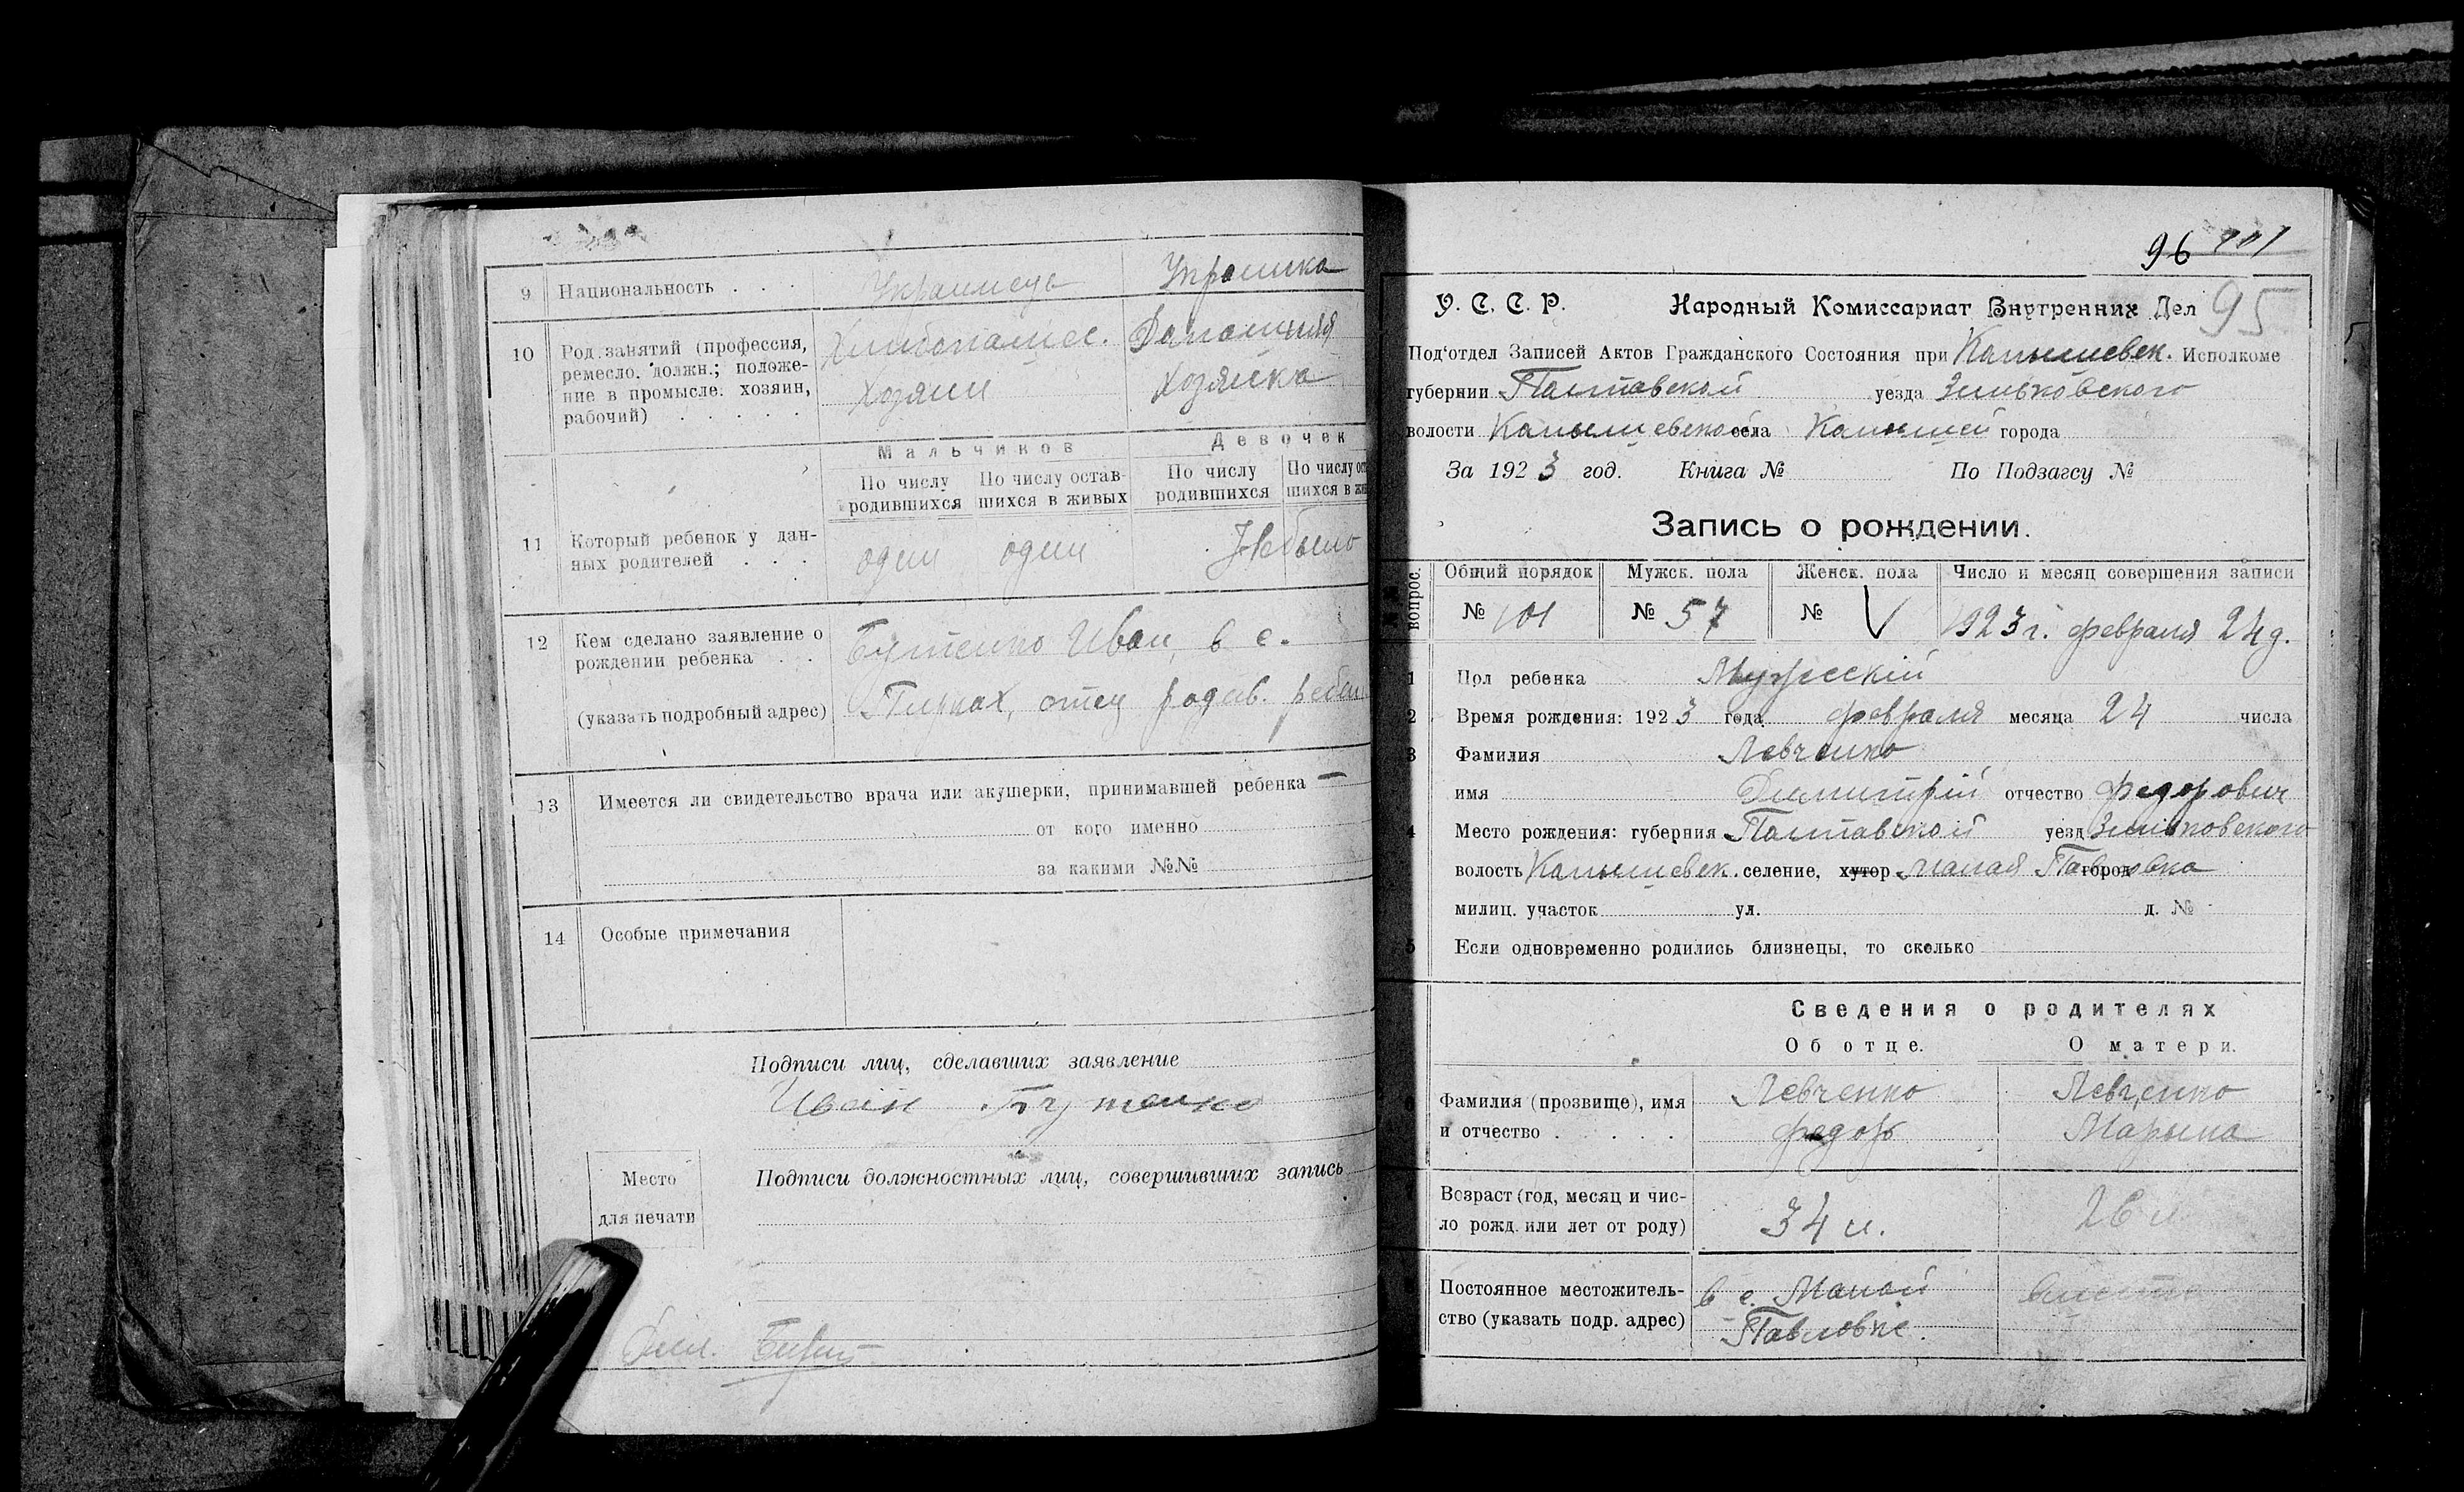 9 Национальность . . . Украинець Украинка
10 Род занятий (профессия, Хлибопашес. Домашняя
ремесло. должн.; положе-
ние в промысле. хозяин, Хозяин Хозяйка
рабочий) . . . . .
Мальчиков Девочек
По числу По числу остав- По числу По числу ос
родившихся шихся в живых родившихся шихся в жи
11 Который ребенок у дан-
ных родителей . . . один один Небыло
12 Кем сделано заявление о Бутенко Иван, в с.
рождении ребенка . .
(указать подробный адрес) отец родив. ребен
13 Имеется ли свидетельство врача или акушерки, принимавшей ребенка —
от кого именно
за какими №№
14 Особые примечания
Подписи лиц, сделавших заявление
Иван Бутенко
Место Подписи должностных лиц, совершивших запись
для печати
96 101
У. С. С. Р. Народный Комиссариат Внутренних Дел 95
Под'отдел Записей Актов Гражданского Состояния при Капышевск. Исполкоме
губернии Полтавской уезда Зиньковского
волости Капышевской села города
За 1923 год. Книга № По Подзагсу №
Запись о рождении.
вопрос. Общий порядок Мужск. пола Женск. пола Число и месяц совершения записи
№ 101 № 57 № V 1923 г. февраля 24 д.
1 Пол ребенка Мужескій
2 Время рождения: 1923 года февраля месяца 24 числа
3 Фамилия Левченко
имя Димитрій отчество Федорович
4 Место рождения: губерния Полтавской уезд Зиньковского
волость Капышевск. селение, хутор малая Павловка город
милиц. участок ул. д. №
5 Если одновременно родились близнецы, то сколько
Сведения о родителях
Об отце. О матери.
6 Фамилия (прозвище), имя Левченко Левченко
и отчество . . . . . Федор Марына
Возраст (год, месяц и чис-
ло рожд. или лет от роду) 34 л. 26 л.
Постоянное местожитель- в с. Малой вместе
ство (указать подр. адрес) Павловке.